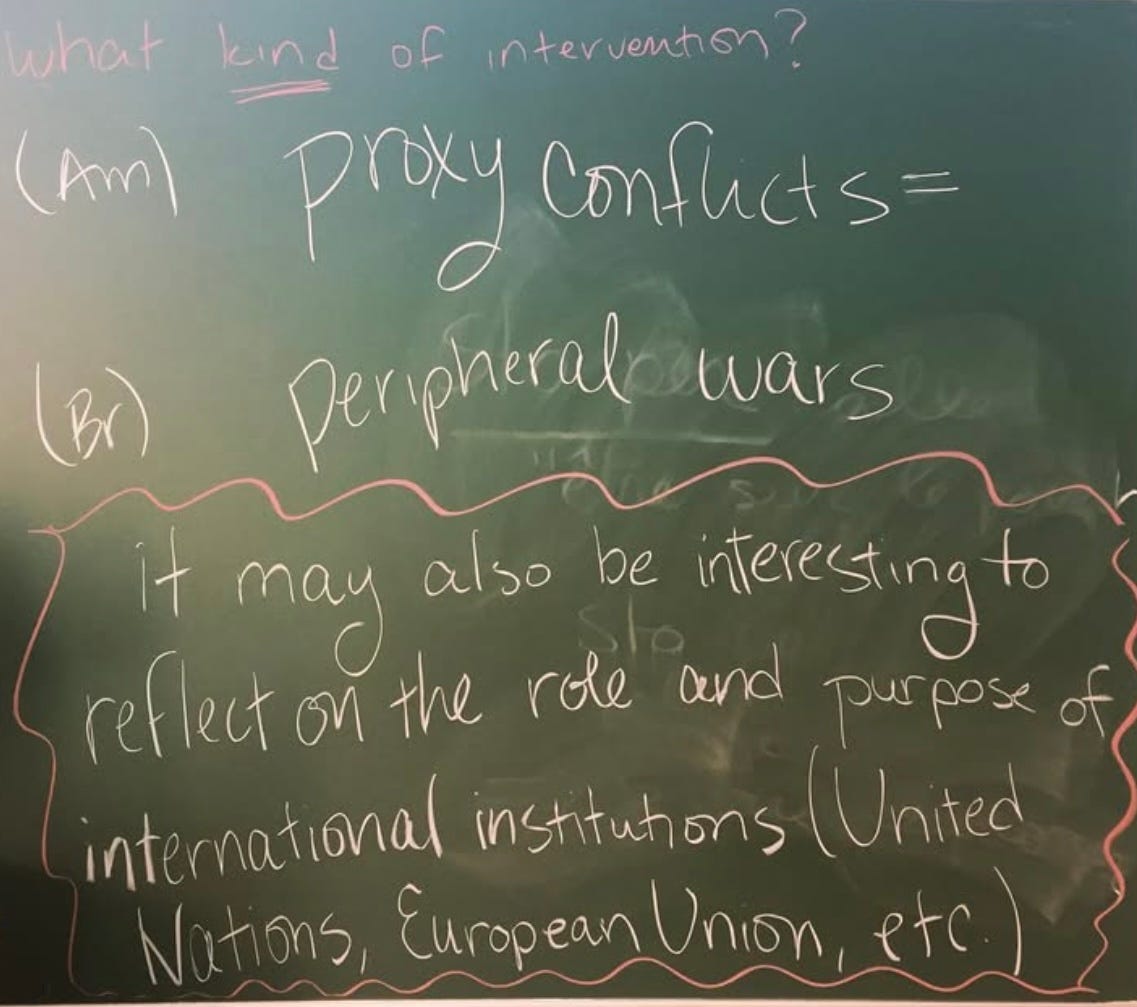 What kind of intervention?
(Am) Proxy Conflicts =
(Br) Peripheral wars
it may also be interesting to
reflect on the role and purpose of
international institutions (United
Nations, European Union, etc.)